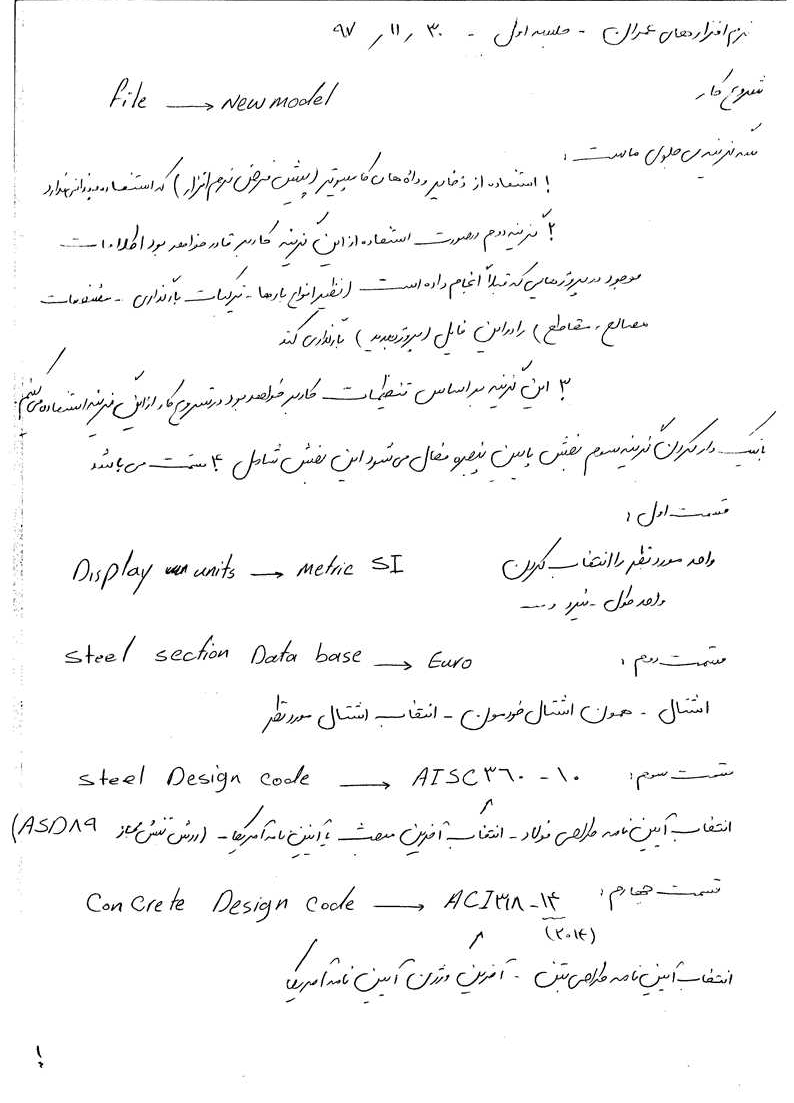 نرم افزارهای عمران - جلسه اول - ۳۰ / ۱۱ / ۹۷
شروع کار
File → New model
سه گزینه ی جلوی ماست :
۱ استفاده از ذخایر و داده های کامپیوتر (پیش فرض نرم افزار) که استفاده چندانی ندارد
۲ گزینه دوم درصورت استفاده از این گزینه کاربر قادر خواهد بود اطلاعات
موجود در پروژهایی که قبلاً انجام داده است (نظیر انواع بارها - ترکیبات بارگذاری - مشخصات
مصالح ، مقاطع) را در این فایل (پروژه جدید) بارگذاری کند
۳ این گزینه بر اساس تنظیمات کاربر خواهد بود در شروع کار از این گزینه استفاده می کنیم
با تیک دار کردن گزینه سوم بخش پایین پنجره فعال می شود این بخش شامل ۴ قسمت می باشد
قسمت اول :
واحد مورد نظر را انتخاب کردن
Display units → metric SI
واحد طول - نیرو و ...
قسمت دوم : Steel section Data base → Euro
اشتال - همون اشتال خودمون - انتخاب اشتال مورد نظر
قسمت سوم : Steel Design code → AISC ۳۶۰ - ۱۰
انتخاب آیین نامه طراحی فولاد - انتخاب آخرین مبحث یا آیین نامه آمریکا - (روش تنش مجاز ASD ۸۹)
قسمت چهارم : Concrete Design code → ACI ۳۱۸ - ۱۴
(۲۰۱۴)
انتخاب آیین نامه طراحی بتن - آخرین ورژن آیین نامه آمریکا
۱